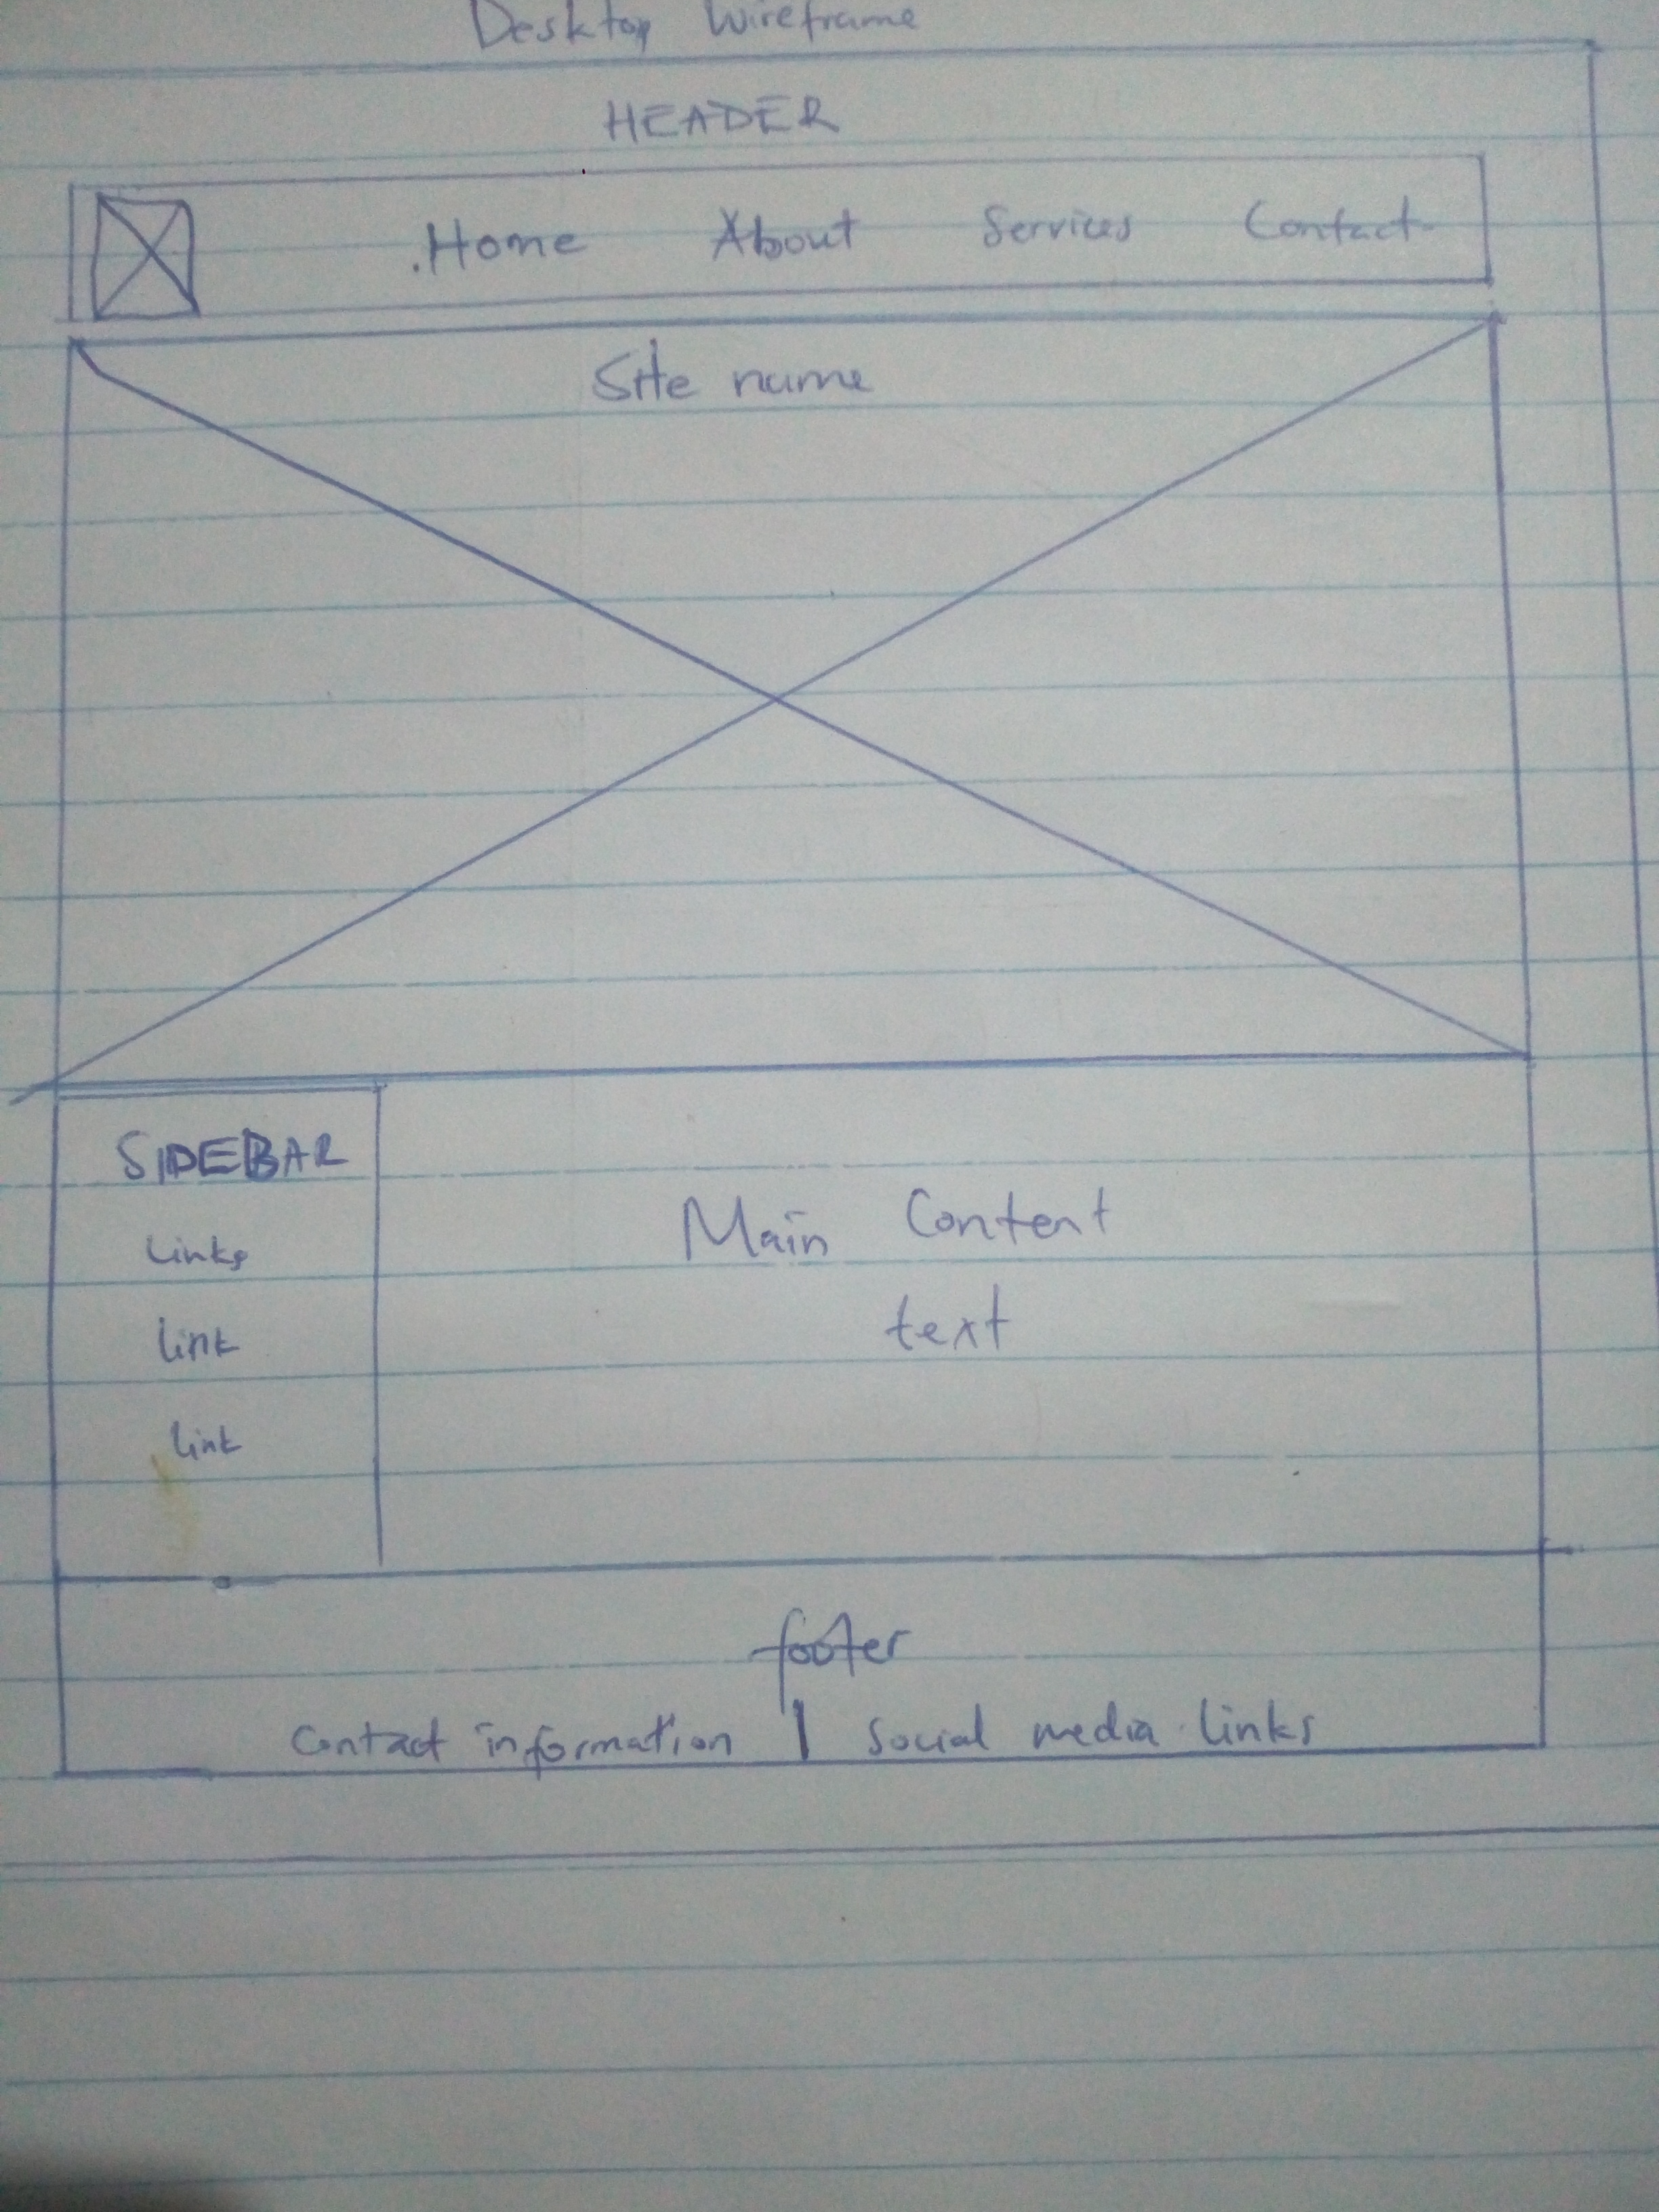 Desktop Wireframe
HEADER
Home About Services Contact
Site name
SIDEBAR
Links
link
link
Main Content
text
footer
Contact information | Social media links